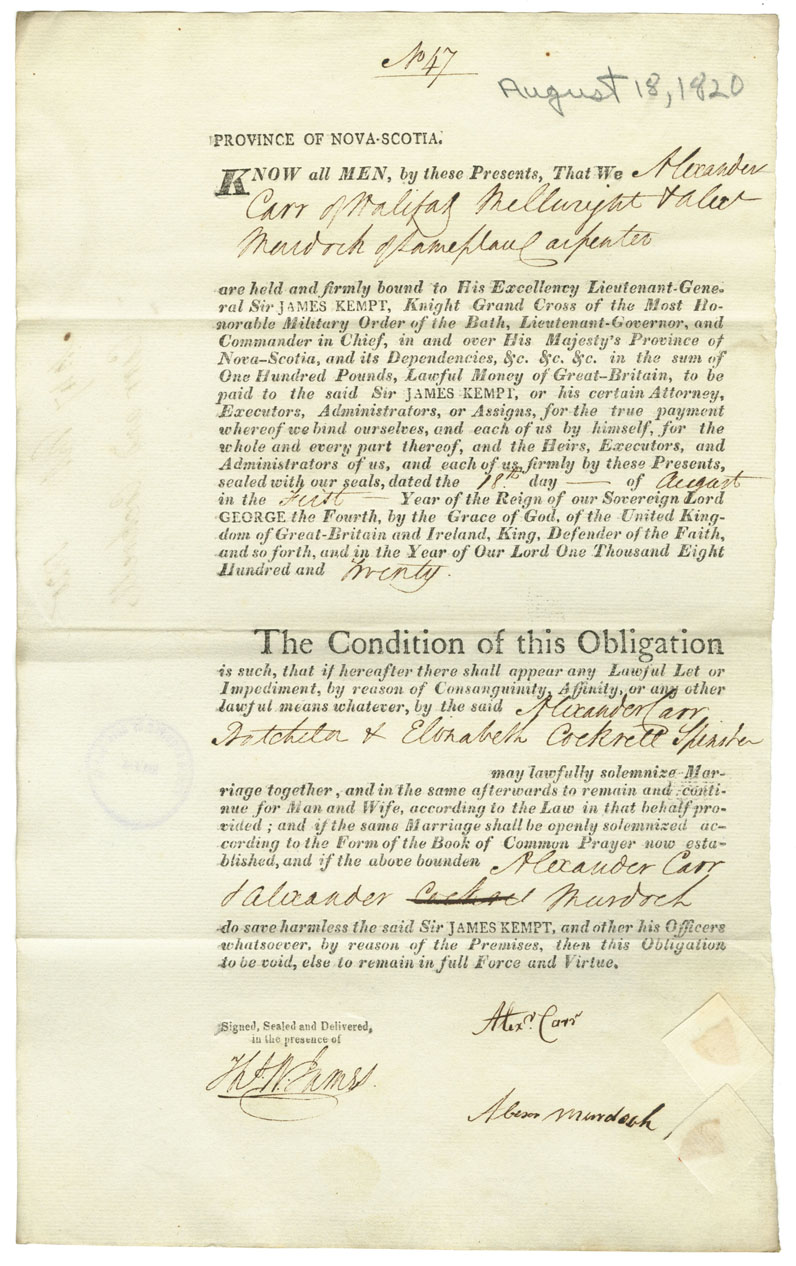 No 47
August 18, 1820
PROVINCE OF NOVA-SCOTIA.
KNOW all MEN, by these Presents, That We Alexander
Carr of Halifax Millwright & Alexr
Murdoch of same place Carpenter
are held and firmly bound to His Excellency Lieutenant-Gene-
ral Sir JAMES KEMPT, Knight Grand Cross of the Most Ho-
norable Military Order of the Bath, Lieutenant-Governor, and
Commander in Chief, in and over His Majesty's Province of
Nova-Scotia, and its Dependencies, &c. &c. &c. in the sum of
One Hundred Pounds, Lawful Money of Great-Britain, to be
paid to the said Sir JAMES KEMPT, or his certain Attorney,
Executors, Administrators, or Assigns, for the true payment
whereof we bind ourselves, and each of us by himself, for the
whole and every part thereof, and the Heirs, Executors, and
Administrators of us, and each of us firmly by these Presents,
sealed with our seals, dated the 18th day — of August
in the First — Year of the Reign of our Sovereign Lord
GEORGE the Fourth, by the Grace of God, of the United King-
dom of Great-Britain and Ireland, King, Defender of the Faith,
and so forth, and in the Year of Our Lord One Thousand Eight
Hundred and Twenty.
The Condition of this Obligation
is such, that if hereafter there shall appear any Lawful Let or
Impediment, by reason of Consanguinity, Affinity, or any other
lawful means whatever, by the said Alexander Carr
Batchelor & Elizabeth Cockrell Spinster
may lawfully solemnize Mar-
riage together, and in the same afterwards to remain and conti-
nue for Man and Wife, according to the Law in that behalf pro-
vided; and if the same Marriage shall be openly solemnized ac-
cording to the Form of the Book of Common Prayer now esta-
blished, and if the above bounden Alexander Carr
& Alexander Murdoch
do save harmless the said Sir JAMES KEMPT, and other his Officers
whatsoever, by reason of the Premises, then this Obligation
to be void, else to remain in full Force and Virtue.
Signed, Sealed and Delivered,
in the presence of
Thos W. James
Alexr Carr
Alexr Murdoch